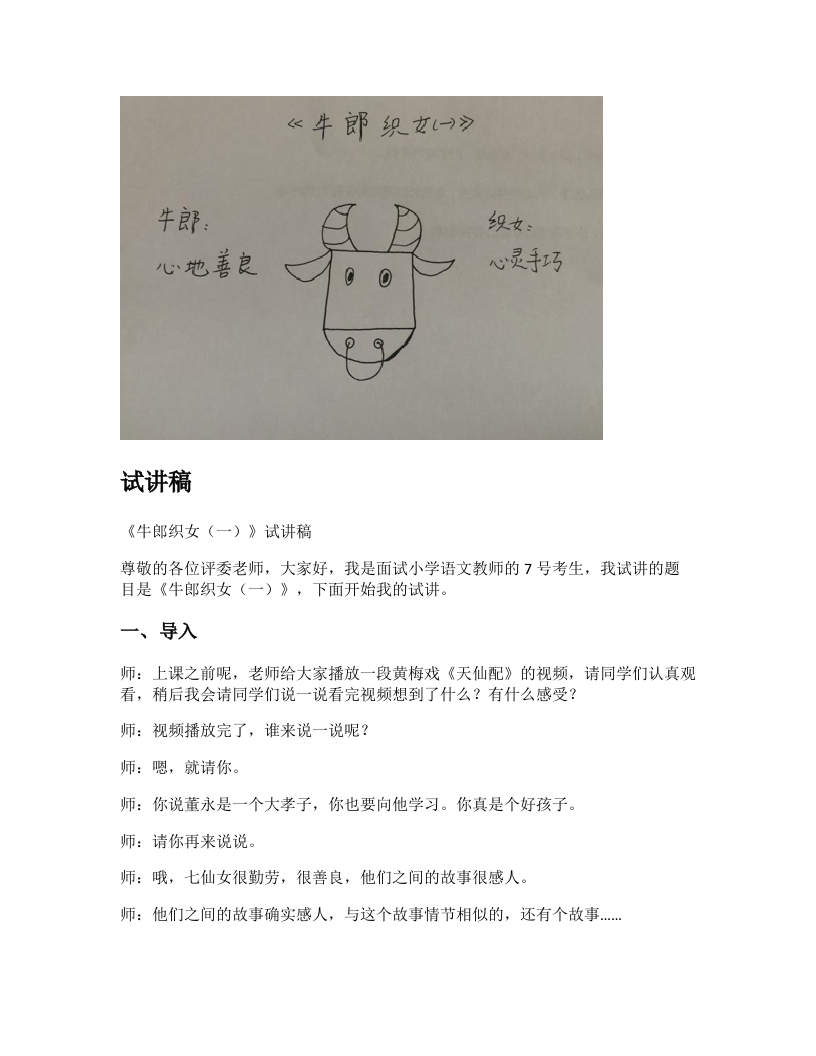 《牛郎织女(一)》
牛郎：
心地善良
织女：
心灵手巧
试讲稿
《牛郎织女（一）》试讲稿
尊敬的各位评委老师，大家好，我是面试小学语文教师的 7 号考生，我试讲的题
目是《牛郎织女（一）》，下面开始我的试讲。
一、导入
师：上课之前呢，老师给大家播放一段黄梅戏《天仙配》的视频，请同学们认真观
看，稍后我会请同学们说一说看完视频想到了什么？有什么感受？
师：视频播放完了，谁来说一说呢？
师：嗯，就请你。
师：你说董永是一个大孝子，你也要向他学习。你真是个好孩子。
师：请你再来说说。
师：哦，七仙女很勤劳，很善良，他们之间的故事很感人。
师：他们之间的故事确实感人，与这个故事情节相似的，还有个故事……